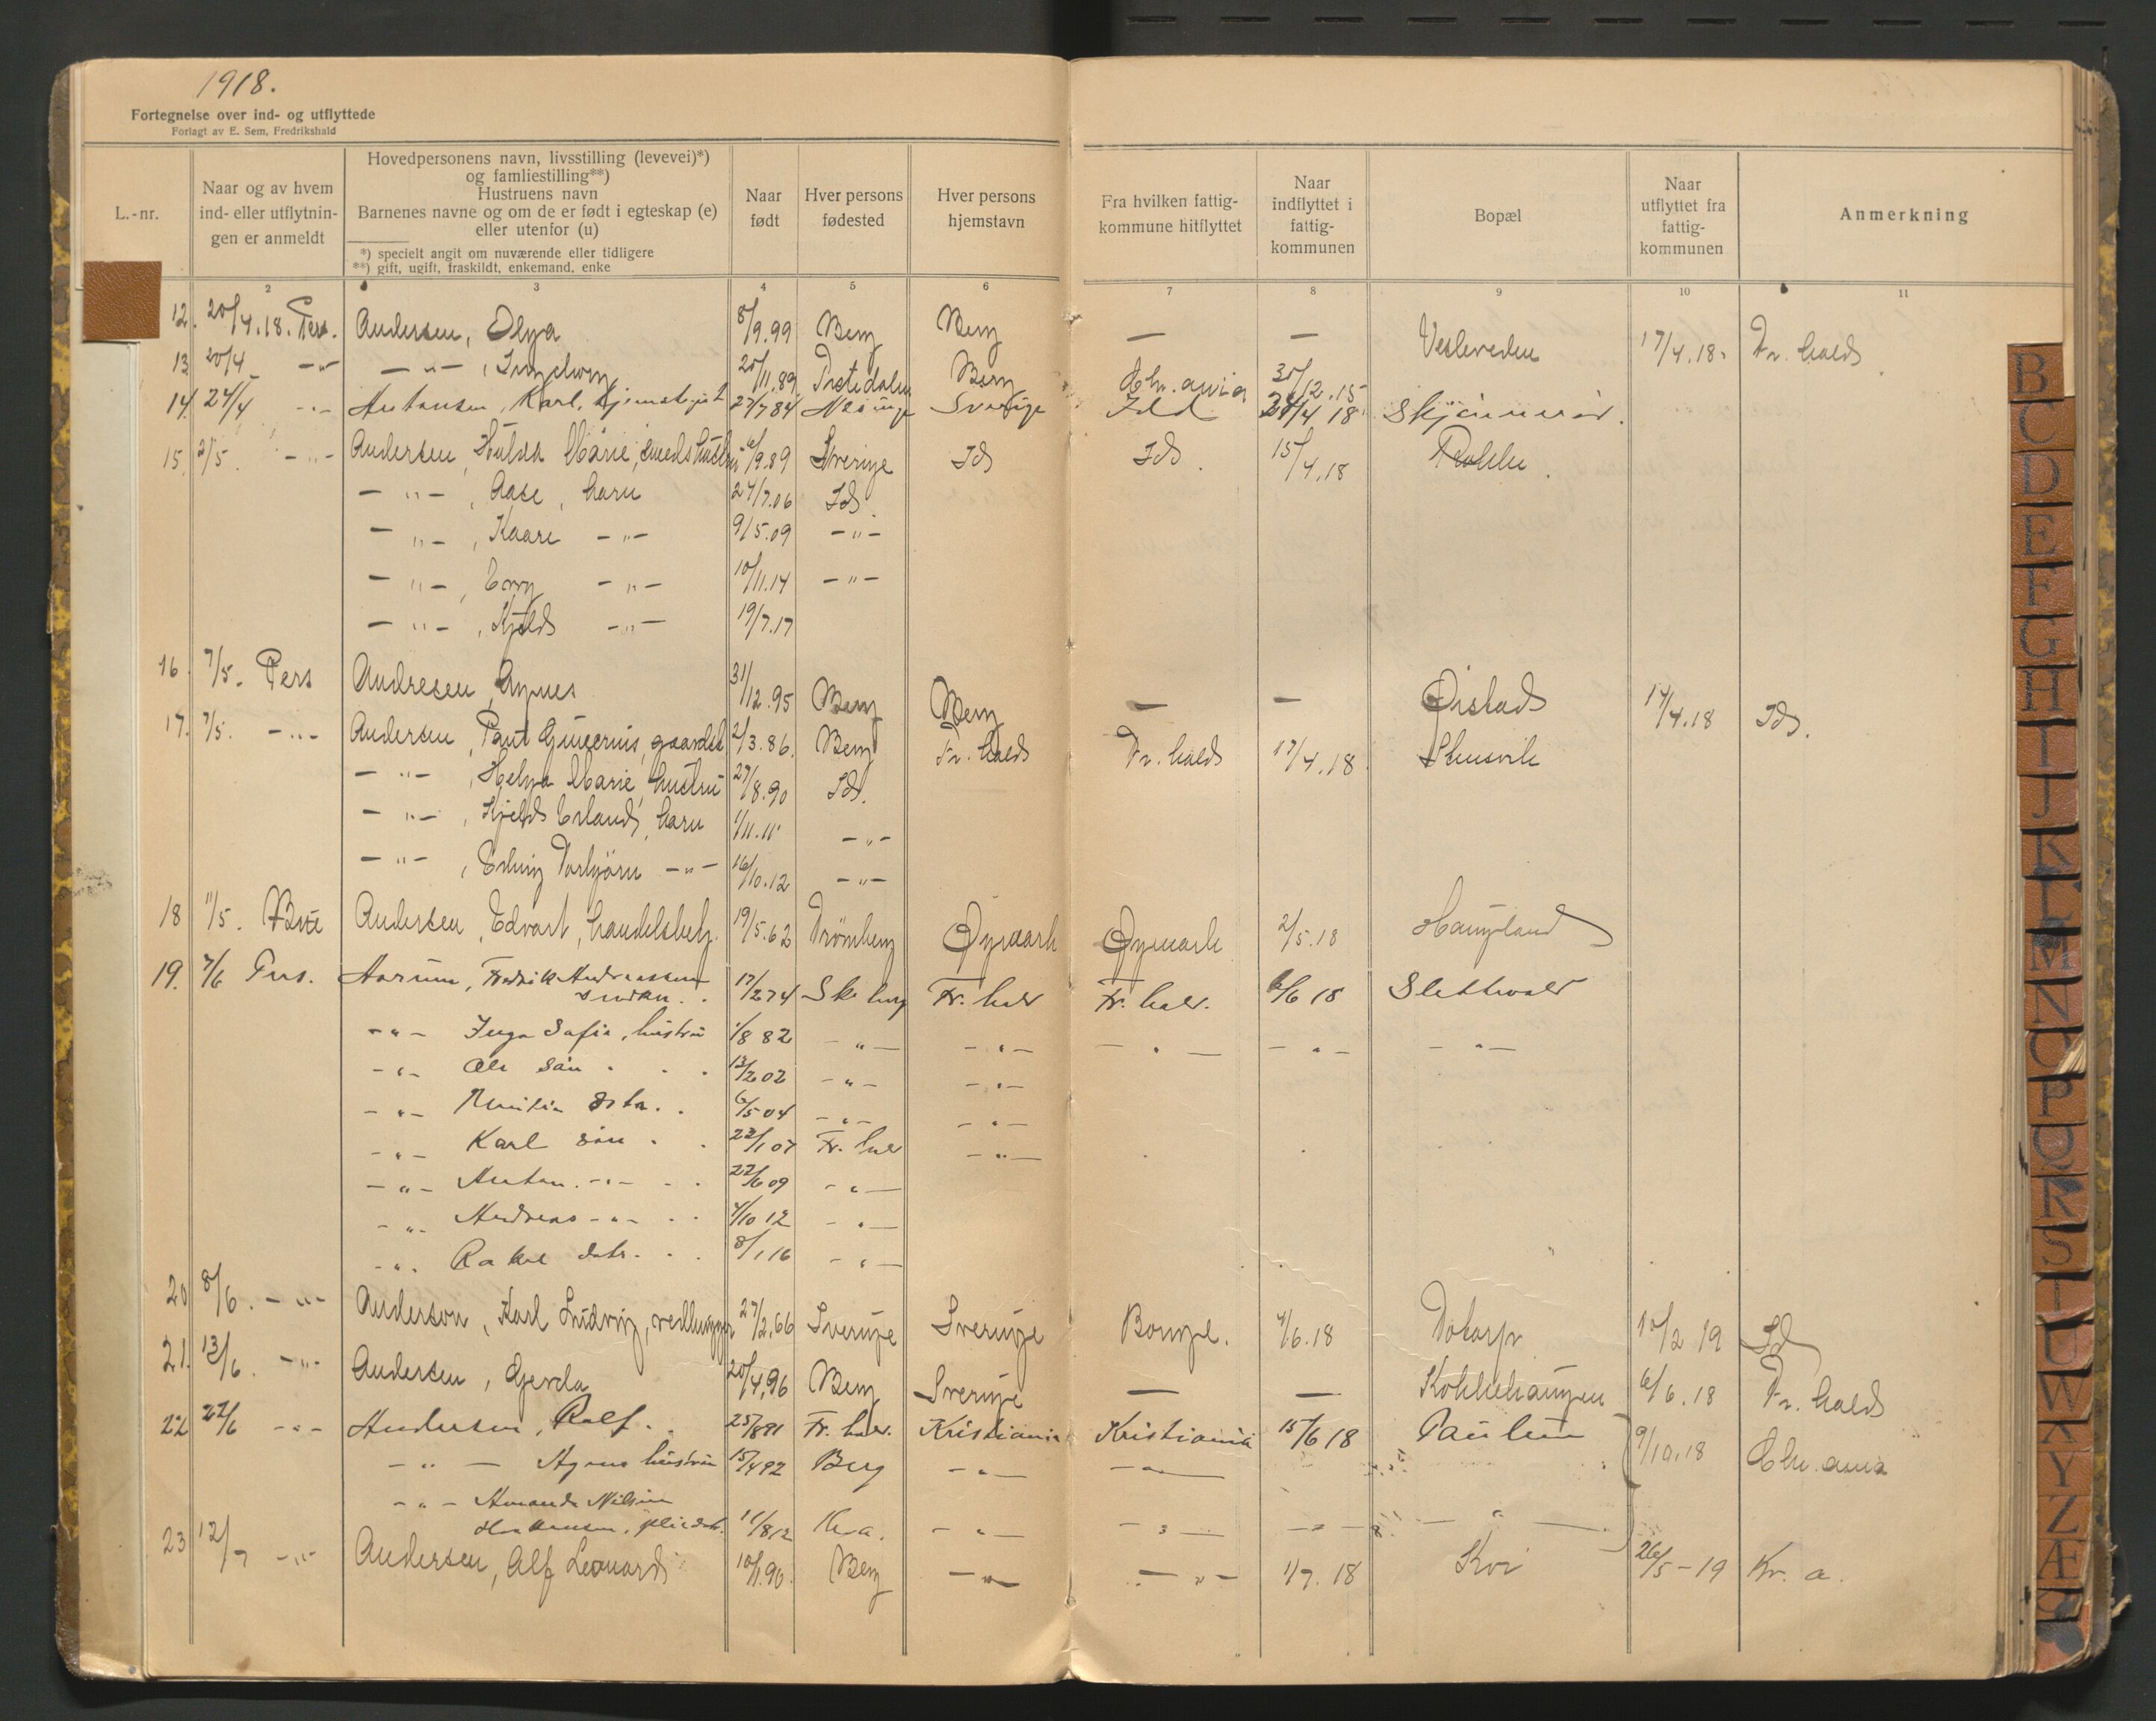 1918.
Fortegnelse over ind- og utflyttede
Forlagt av E. Sem, Fredrikshald
L.-nr.
Naar og av hvem
ind- eller utflytnin-
gen er anmeldt
Hovedpersonens navn, livsstilling (levevei)*)
og famliestilling**)
Hustruens navn
Barnenes navne og om de er født i egteskap (e)
eller utenfor (u)
*) specielt angit om nuværende eller tidligere
**) gift, ugift, fraskildt, enkemand, enke
Naar
født
Hver persons
fødested
Hver persons
hjemstavn
Fra hvilken fattig-
kommune hitflyttet
Naar
indflyttet i
fattig-
kommunen
Bopæl
Naar
utflyttet fra
fattig-
kommunen
Anmerkning
2 3 4 5 6 7 8 9 10 11
12. 20/4.18. Pers. Andersen, Olga 8/9.99 Berg Berg — — 17/4.18. Fr.hald
13 20/4 -"- -"-, Ingeborg 20/11.89 Berg Chr.ania 31/12.15
14. 24/4 -"- Antonsen, Karl, 27/7 84 Sverige Idd 4 18
15. 2/5. -"- Andersen, Hulda Marie, smeds hustru 6/9.89 Sverige Id Id. 15/4.18
-"-, Aase, barn 24/7.06 Id.
-"-, Kaare -"- 9/5.09 -"-
-"-, -"- 10/11.14 -"-
-"-, Kjeld -"- 19/7.17
16. 7/5. Pers Andresen, Agnes 31/12.95 Berg Berg — — Ørstad 17/4.18 Id.
17. 7/5. -"- Andersen, Paul 2/3.86. Berg Fr.hald Fr.hald 17/4.18
-"-, Helga Marie, hustru 27/8.90 Id.
-"-, Kjeld Erland, barn 1/11.11 -"-
-"-, Erling Torbjörn -"- 16/10.12 -"-
18 11/5. Andersen, Edvart, handelsbetj. 19/5.62 Trömborg Øymark Øymark 2/5.18 Haugland
19. 7/6 Pers. Aorum, Fredrik Andreassen
snekker. 17/2 74 Skeberg Fr.hald Fr.hald. 6/6 18
-"- Inga Sofie, hustru 1/8 82 -"- -"- -"- -"- -"-
-"- Ole sön 13/2 02 -"- -"-
-"- 6/5 04 -"- -"-
-"- Karl sön 23/1 07 Fr.hald -"-
-"- Anton -"- 22/6 09 -"-
-"- Andreas -"- 4/10 12 -"-
-"- Rakel datr. 8/1 16 -"-
20 8/6. -"- Anderson, Karl Ludvig, vedhugger 27/2.66 Sverige Sverige Borge. 4/6.18 10/2 19 Id
21. 13/6. -"- Andersen, Gerda 20/4.96 Berg Sverige — — Kokkehaugen 6/6.18 Fr.hald
22 22/6 -"- Andersen, Rolf. 25/8 91 Fr.hald. Kristiania Kristiania 15/6 18 9/10.18 Chr.ania
-"- Agnes hustru 15/4 92 Berg -"- -"-
-"- Amanda Nilsine
pleiedatr. 11/8 12 Kr.a. -"- -"- -"- -"-
23 12/7 -"- Andersen, Alf Leonard 10/1.90. Berg -"- -"- 1/7.18 26/5-19 Kr.a.
B
C
D
E
F
G
H
I
J
K
L
M
N
O
P
Q
R
S
T
U
W
X
Y
Z
Æ
Ø